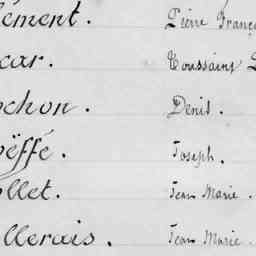 lément. Pierre Franço
car. Toussaint L
chon. Denis.
oëffé. Joseph.
ollet. Jean Marie.
llerais. Jean Marie.